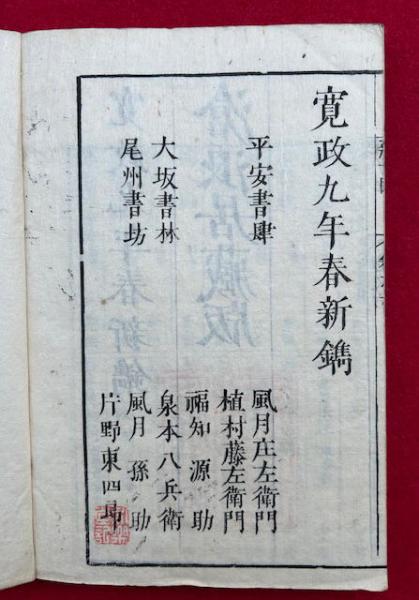 寛政九年春新鐫
平安書肆
風月庄左衛門
植村藤左衛門
福知源助
大坂書林
泉本八兵衛
尾州書坊
風月孫助
片野東四郎
滄浪居藏版
春新鐫